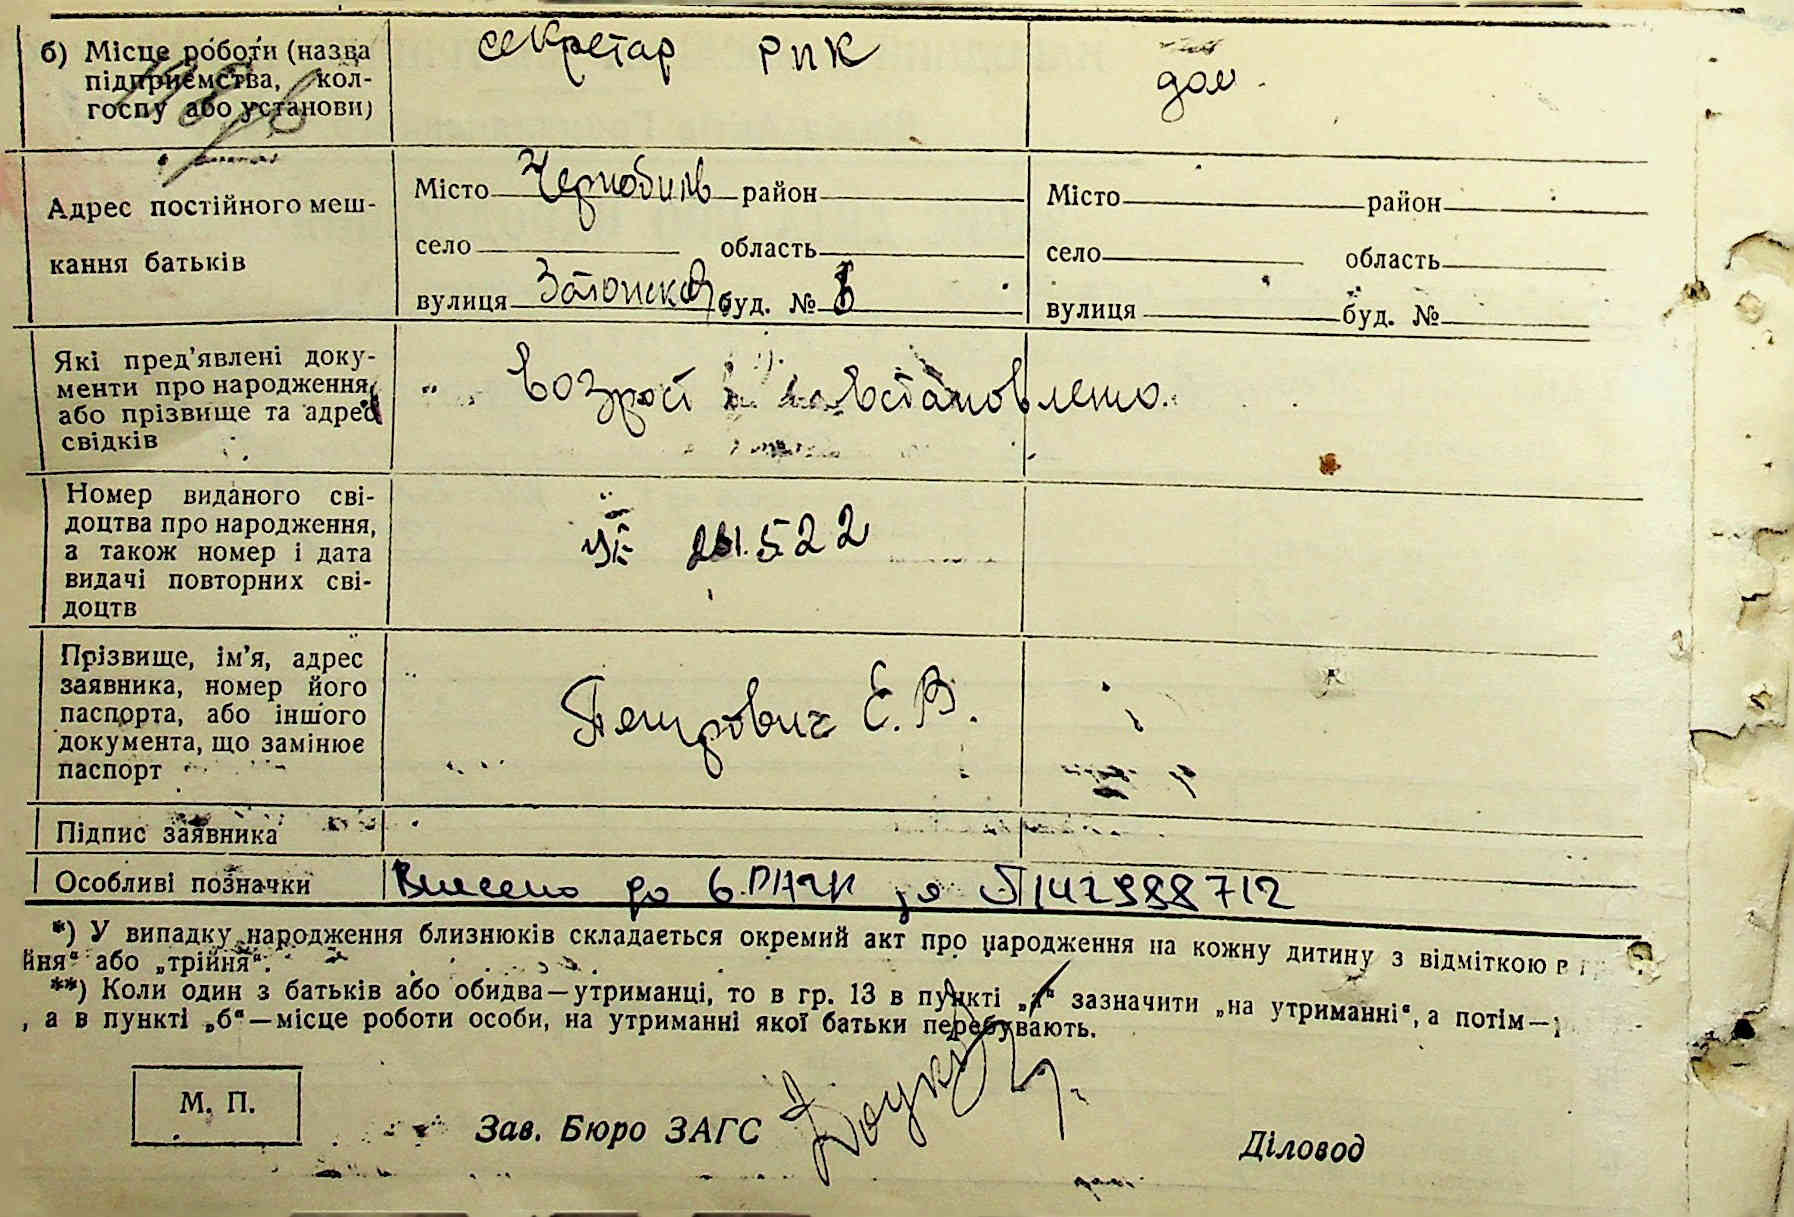 б) Місце роботи (назва підприємства, колгоспу або установи)
секретар РПК
дом.
Адрес постійного мешкання батьків
Місто Чернобиль район
село область
вулиця Затонская буд. №
Місто район
село область
вулиця буд. №
Які пред'явлені документи про народження або прізвище та адрес свідків
возрост встановлено.
Номер виданого свідоцтва про народження, а також номер і дата видачі повторних свідоцтв
522
Прізвище, ім'я, адрес заявника, номер його паспорта, або іншого документа, що замінює паспорт
Петрович Є. В.
Підпис заявника
Особливі позначки
Внесено до 6.РАЦН за 
*) У випадку народження близнюків складається окремий акт про народження на кожну дитину з відміткою
йня“ або „трійня“.
**) Коли один з батьків або обидва—утриманці, то в гр. 13 в пункті „а“ зазначити „на утриманні“, а потім—
, а в пункті „б“—місце роботи особи, на утриманні якої батьки перебувають.
М. П.
Зав. Бюро ЗАГС
Діловод